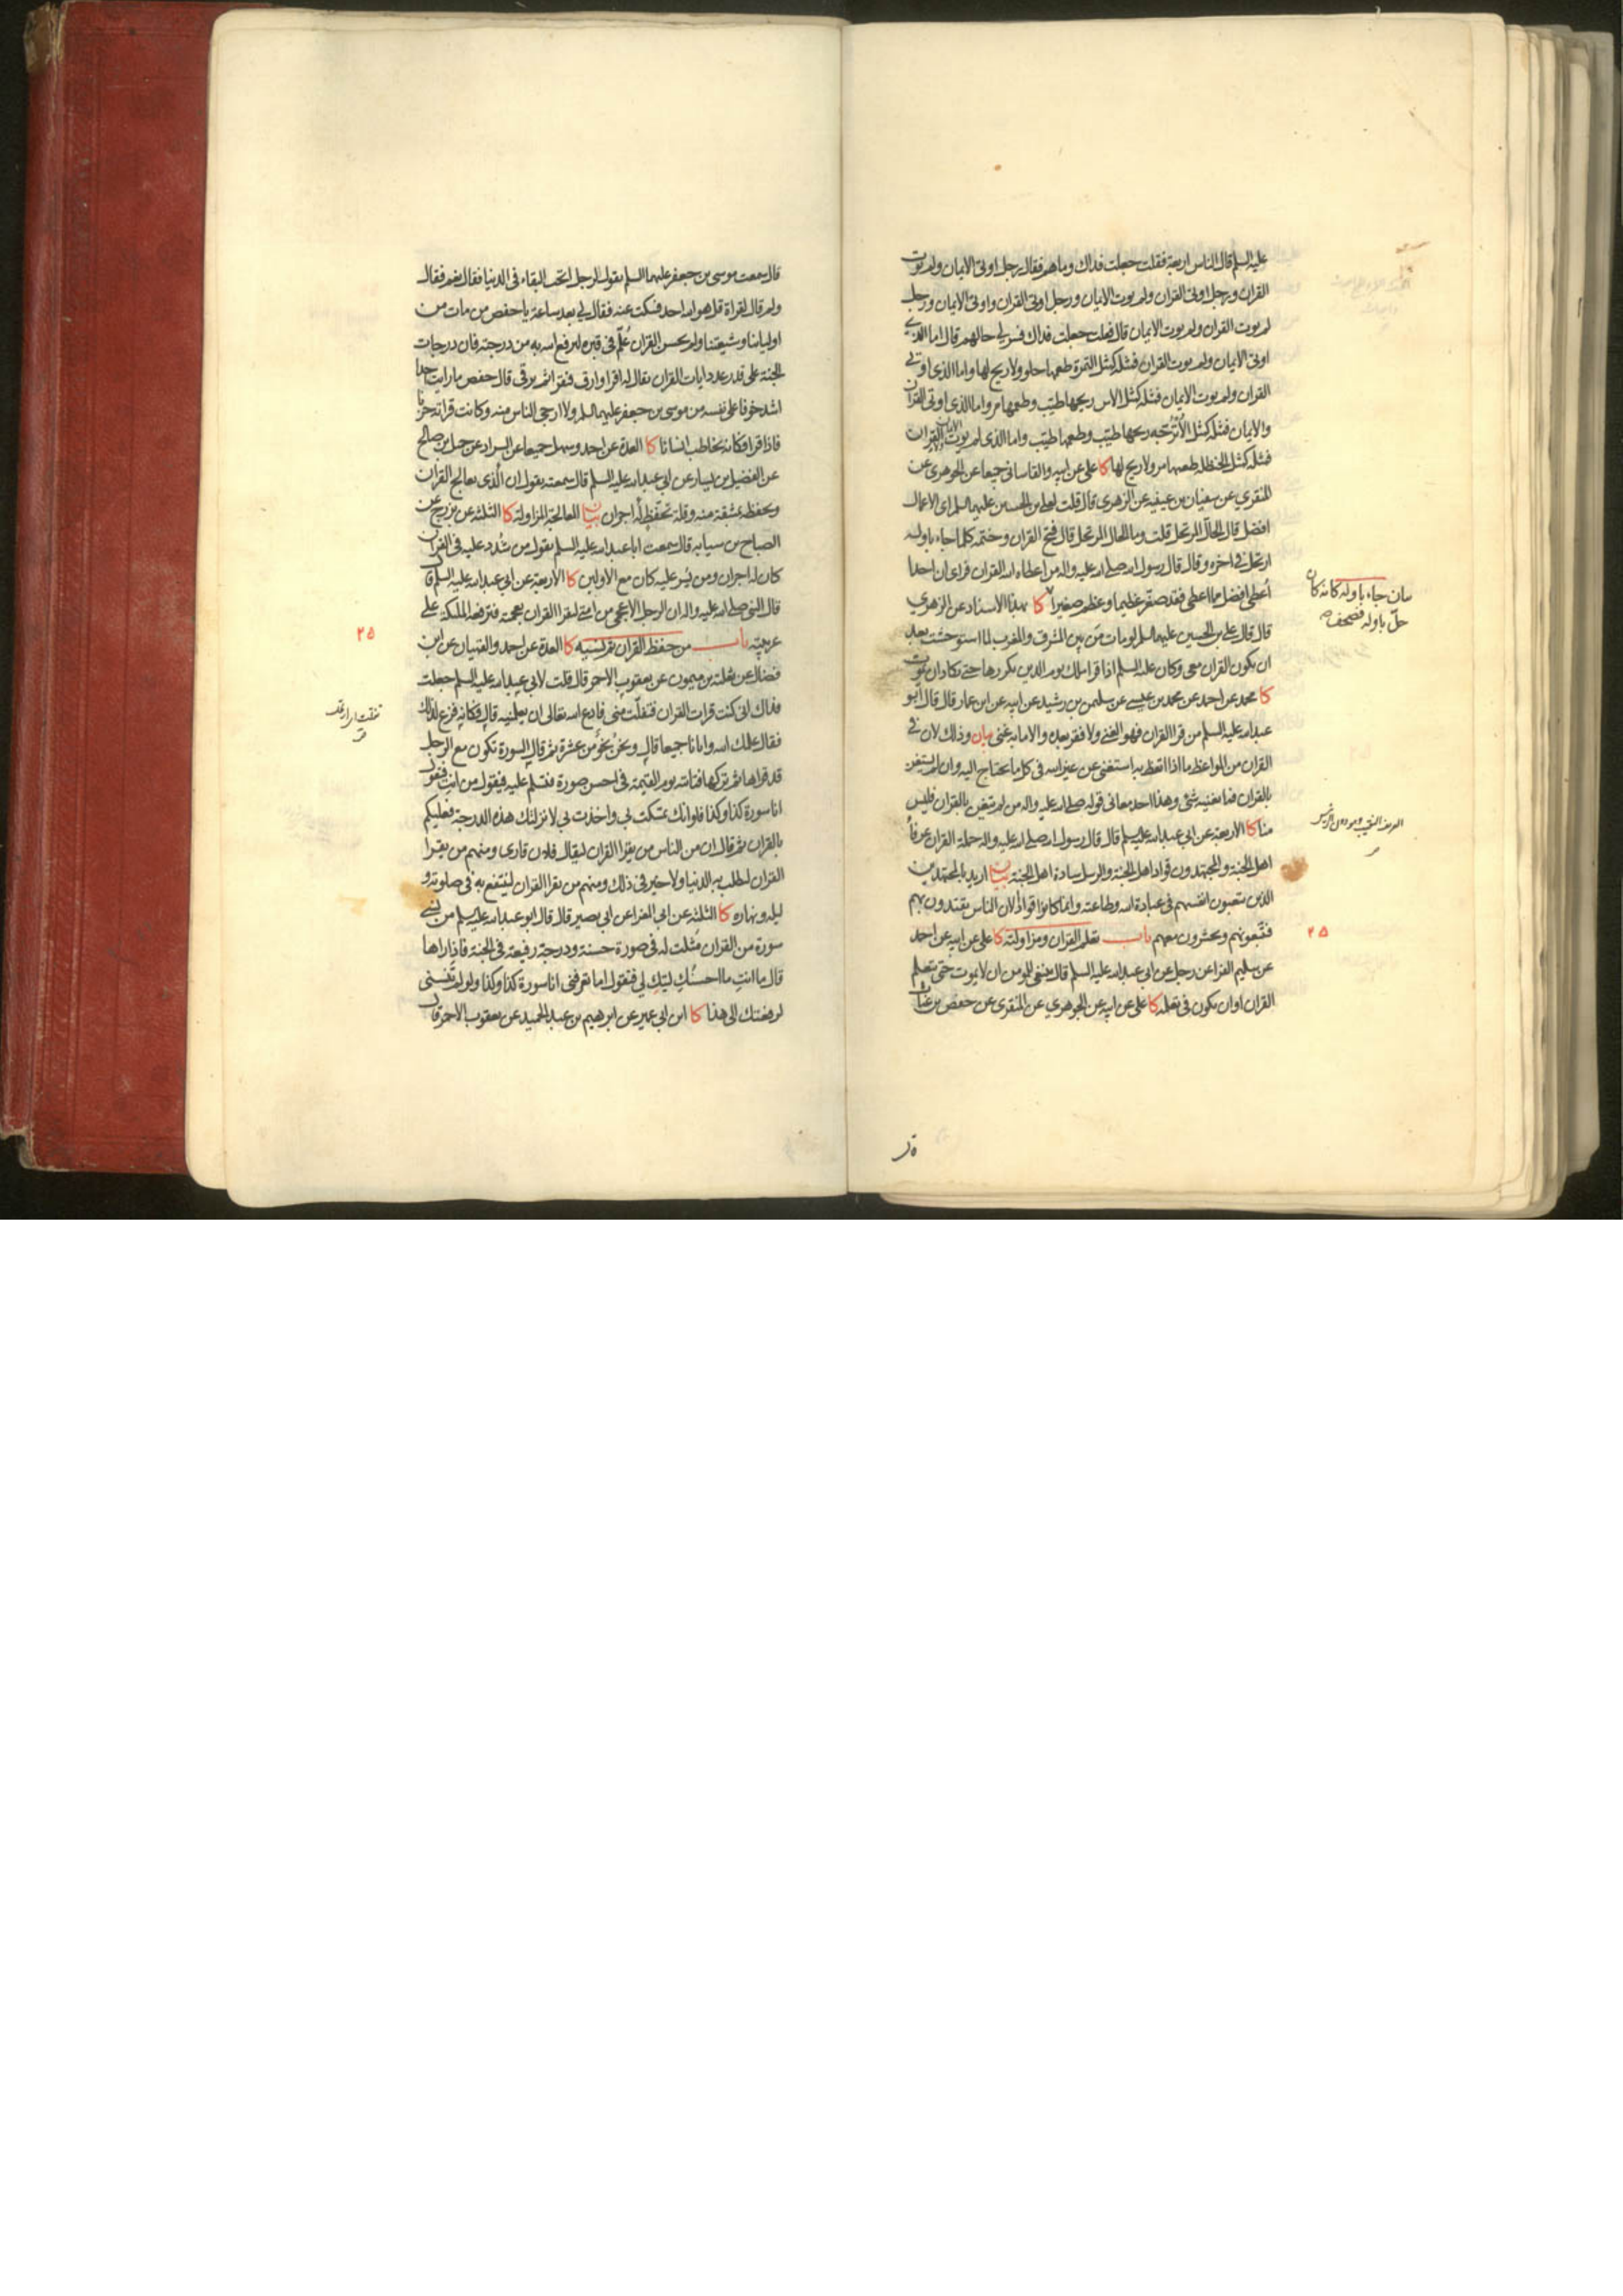 عليه السلم قال الناس اربعة فقلت جعلت فداك وما هم فقال رجل اوتي الايمان ولم يوت
القران ورجل اوتي القران ولم يوت الايمان ورجل اوتي القران واوتي الايمان ورجل
لم يوت القران ولم يوت الايمان قال قلت جعلت فداك فسر لي حالهم قال اما الذي
اوتي الايمان ولم يوت القران فمثله كمثل التمرة طعمها حلو ولا ريح لها واما الذي اوتي
القران ولم يوت الايمان فمثله كمثل الاس ريحها طيب وطعمها مر واما الذي اوتي القران
والايمان فمثله كمثل الاُتْرُجّة ريحها طيّب وطعمها طيّب واما الذي لم يوت الايمان القران
فمثله كمثل الحنظلة طعمها مر ولا ريح لها كا علي عن ابيه والقاساني جميعا عن الجوهري عن
المنقري عن سفيان بن عيينه عن الزهري قال قلت لعلي بن الحسين عليهما السلم اي الاعمال
افضل قال الحالّ المرتحل قلت وما الحال المرتحل قال فتح القران وختمه كلما جاء باوله
ارتحل في اخره وقال قال رسول الله صلى الله عليه واله من اعطاه الله القران فراى ان احدا
اُعطي افضل مما اعطي فقد صغّر عظيما وعظم صغيرا كا بهذا الاسناد عن الزهري
قال قال علي بن الحسين عليهما السلم لو مات مَن بين المشرق والمغرب لما استوحشت بعد
ان يكون القران معي وكان عليه السلم اذا قرا ملك يوم الدين يكررها حتى يكاد ان يموت
كا محمد عن احمد عن محمد بن عيسى عن سليمن بن رشيد عن ابيه عن ابن عمار قال قال ابو
عبد الله عليه السلم من قرا القران فهو الغني ولا فقر بعده والا ما به غنى بيان وذلك لان في
القران من المواعظ ما اذا اتعظ به استغنى عن غير الله في كل ما يحتاج اليه وان لم يستغن
بالقران فما يغنيه شئ وهذا احد معاني قوله صلى الله عليه واله من لم يتغن بالقران فليس
منا كا الاربعة عن ابي عبد الله عليه السلم قال قال رسول الله صلى الله عليه واله حملة القران عرفاء
اهل الجنة والمجتهدون قواد اهل الجنة والرسل سادة اهل الجنة بيان اريد بالمجتهدين
الذين يتعبون انفسهم في عبادة الله وطاعته وانما كانوا قوادًا لان الناس يقتدون بهم
فيتبعونهم ويحشرون معهم باب تعلم القران ومزاولته كا علي عن ابيه عن احمد
عن سليم الفراء عن رجل عن ابي عبد الله عليه السلم قال ينبغي للمومن ان لا يموت حتى يتعلم
القران او ان يكون في تعلمه كا علي عن ابيه عن الجوهري عن المنقري عن حفص بن غياث
بيان جاء باوله كانه كان
حلّ باوله فصحف
٢٥
قال
قال سمعت موسى بن جعفر عليهما السلم يقول لرجل اتحب البقاء في الدنيا فقال نعم فقال
ولم قال لقراة قل هو الله احد فسكت عنه فقال لي بعد ساعة يا حفص من مات من
اوليائنا وشيعتنا ولم يحسن القران عُلّم في قبره ليرفع الله به من درجته فان درجات
الجنة على قدر عدد ايات القران يقال له اقرا وارق فيقرا ثم يرقى قال حفص ما رايت احدا
اشد خوفا على نفسه من موسى بن جعفر عليهما السلم ولا ارجى الناس منه وكانت قراته حزنا
فاذا قرا فكانه يخاطب انسانا كا العدة عن احمد وسهل جميعا عن السراد عن جميل بن صالح
عن الفضيل بن يسار عن ابي عبد الله عليه السلم قال سمعته يقول ان الذي يعالج القران
ويحفظه بمشقة منه وقلة تحفّظ له اجران بيان المعالجة المزاولة كا الثلثة عن بزرج عن
الصباح بن سيابه قال سمعت ابا عبد الله عليه السلم يقول من شُدد عليه في القران
كان له اجران ومن يُسر عليه كان مع الاولين كا الاربعة عن ابي عبد الله عليه السلم قال
قال النبي صلى الله عليه واله ان الرجل الاعجمي من امتي ليقرا القران بعجمته فترفعه الملئكة على
عربيته باب من حفظ القران ثم نسيه كا العدة عن احمد والقميان عن ابن
فضال عن ثعلبة بن ميمون عن يعقوب الاحمر قال قلت لابي عبد الله عليه السلم جعلت
فداك اني كنت قرات القران فتفلّت مني فادع الله تعالى ان يعلمنيه قال فكانه فزع لذلك
فقال علمك الله وايانا جميعا قال ونحنُ نحوٌ من عشرة ثم قال السورة تكون مع الرجل
قد قراها ثم تركها فتاتيه يوم القيمة في احسن صورة فتسلم عليه فيقول من انتِ فتقول
انا سورة كذا وكذا فلو انك تمسكت بي واخذت بي لانزلتك هذه الدرجة فعليكم
بالقران ثم قال ان من الناس من يقرا القران ليقال فلان قاري ومنهم من يقرا
القران لطلب به الدنيا ولا خير في ذلك ومنهم من يقرا القران لينتفع به في صلوته و
ليله ونهاره كا الثلثة عن ابي المغرا عن ابي بصير قال قال ابو عبد الله عليه السلم من نسي
سورة من القران مُثلت له في صورة حسنة ودرجة رفيعة في الجنة فاذا راها
قال ما انتِ ما احسنكِ ليتكِ لي فتقول اما تعرفني انا سورة كذا وكذا ولو لم تنسني
لرفعتك الى هذا كا ابن ابي عمير عن ابرهيم بن عبد الحميد عن يعقوب الاحمر قال
٢٥